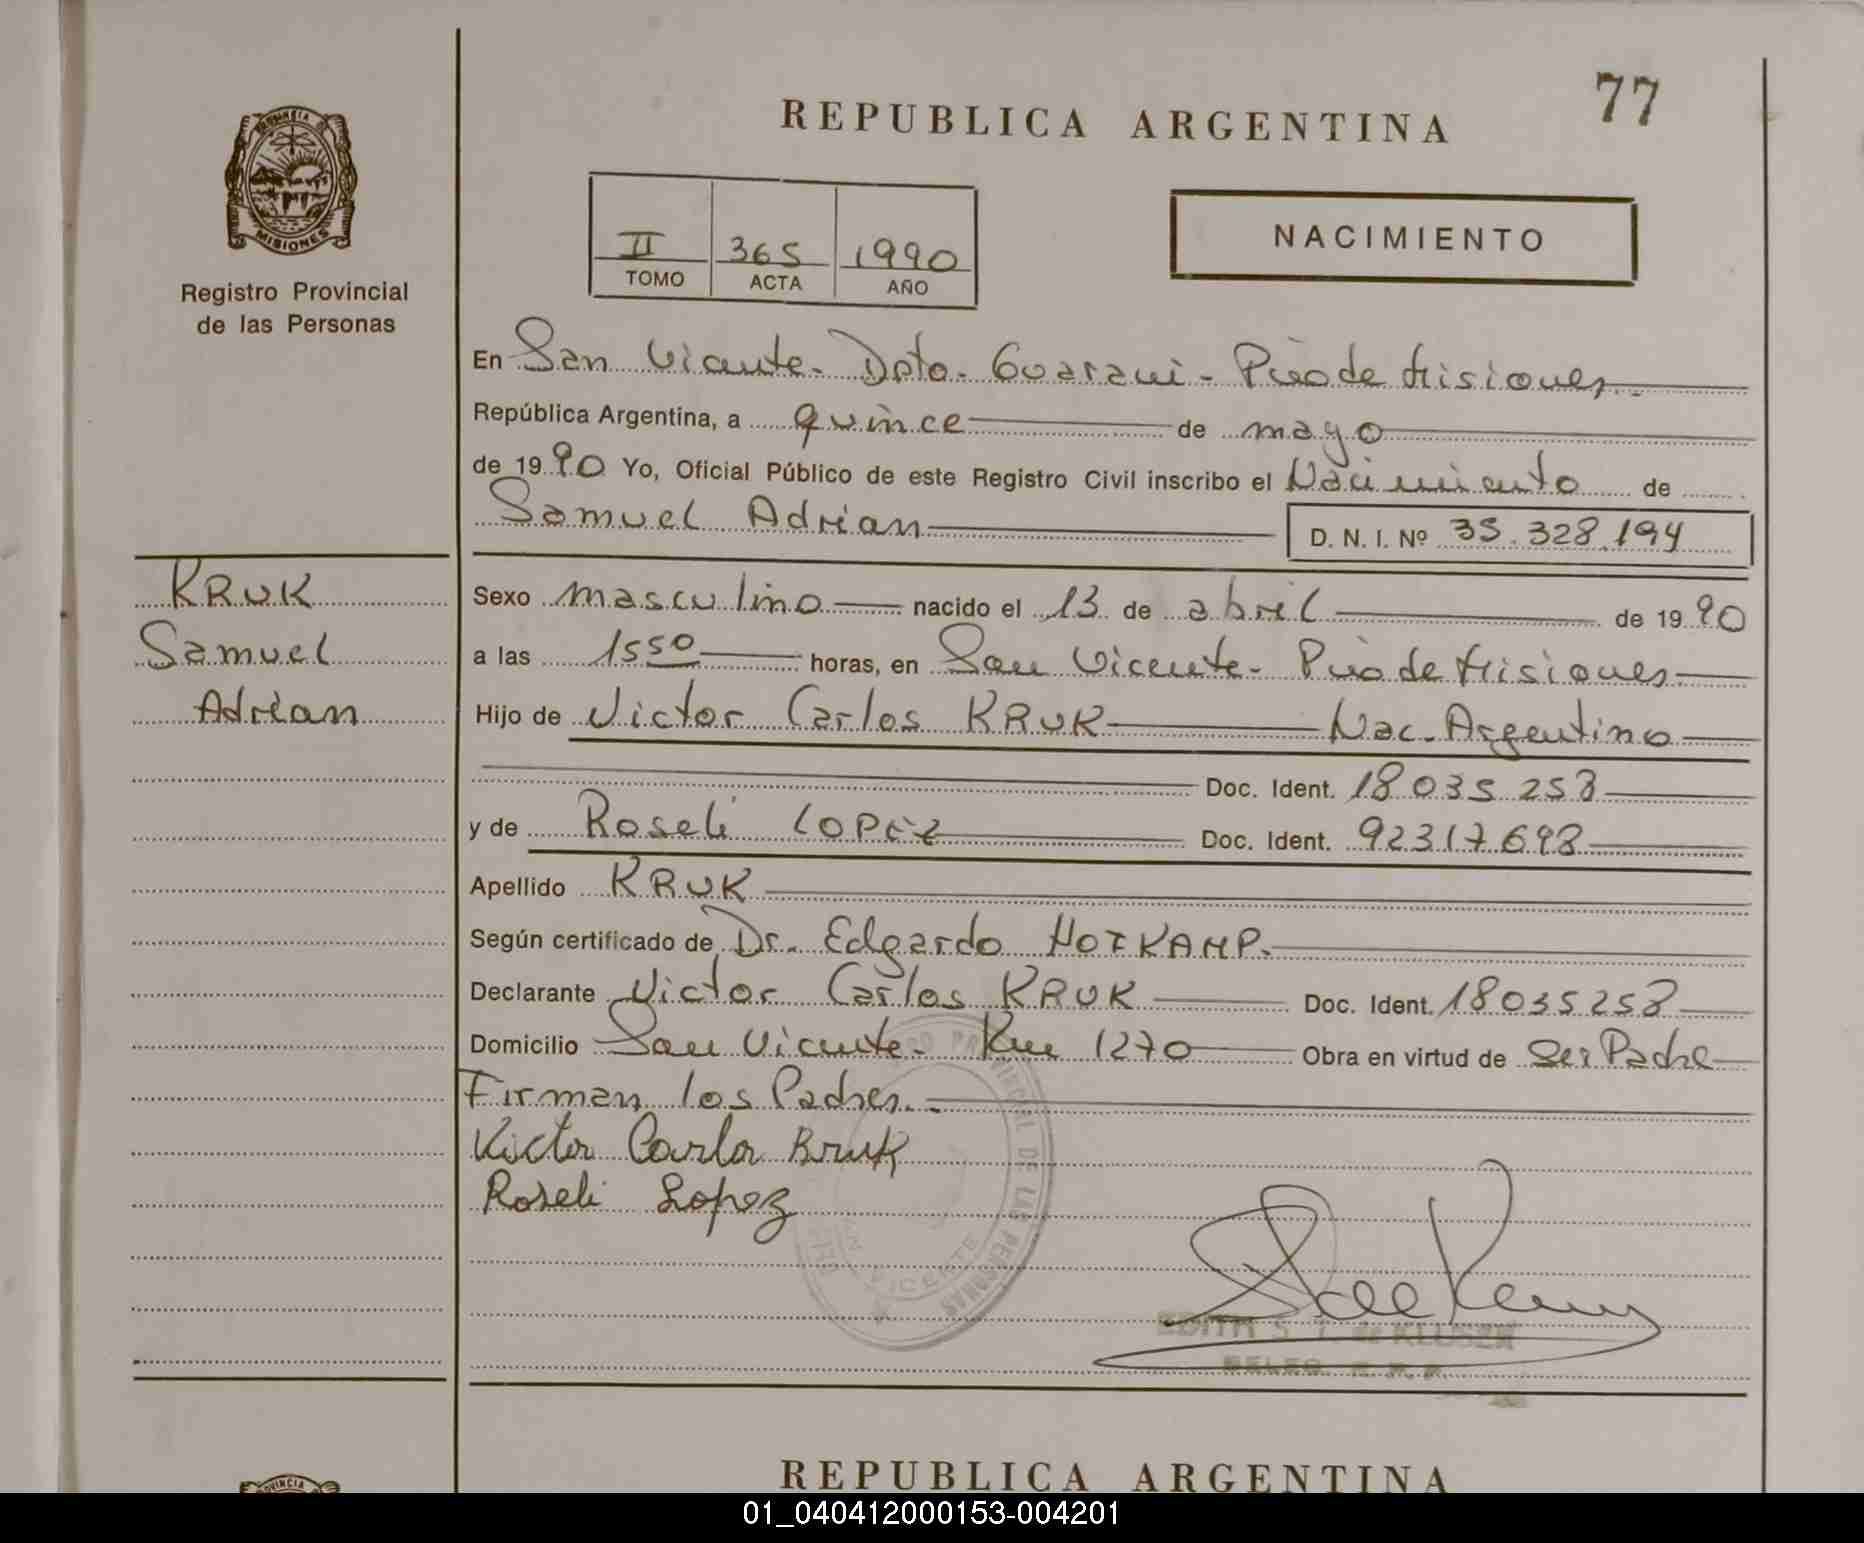 77
REPUBLICA ARGENTINA
PROVINCIA
MISIONES
Registro Provincial
de las Personas
II 365 1990
TOMO ACTA AÑO
NACIMIENTO
En San Vicente - Dpto. Guarani - Pcia de Misiones.-
República Argentina, a quince de mayo
de 1990 Yo, Oficial Público de este Registro Civil inscribo el Nacimiento de
Samuel Adrian
D. N. I. Nº 35.328.194
KRUK
Samuel
Adrian
Sexo masculino nacido el 13 de abril de 1990
a las 1550 horas, en San Vicente - Pcia de Misiones
Hijo de Victor Carlos KRUK Nac. Argentino
Doc. Ident. 18 035 258
y de Roseli LOPEZ Doc. Ident. 92317698
Apellido KRUK
Según certificado de Dr. Edgardo HOTKAMP.
Declarante Victor Carlos KRUK Doc. Ident. 18035258
Domicilio San Vicente - Km 1270 Obra en virtud de Ser Padre
Firman los Padres.-
Victor Carlos Bruk
Roseli Lopez
PROVINCIAL DE LAS PERSONAS
VICENTE
EDITH S. T. de KLUSEN
REPUBLICA ARGENTINA
PROVINCIA
01_040412000153-004201